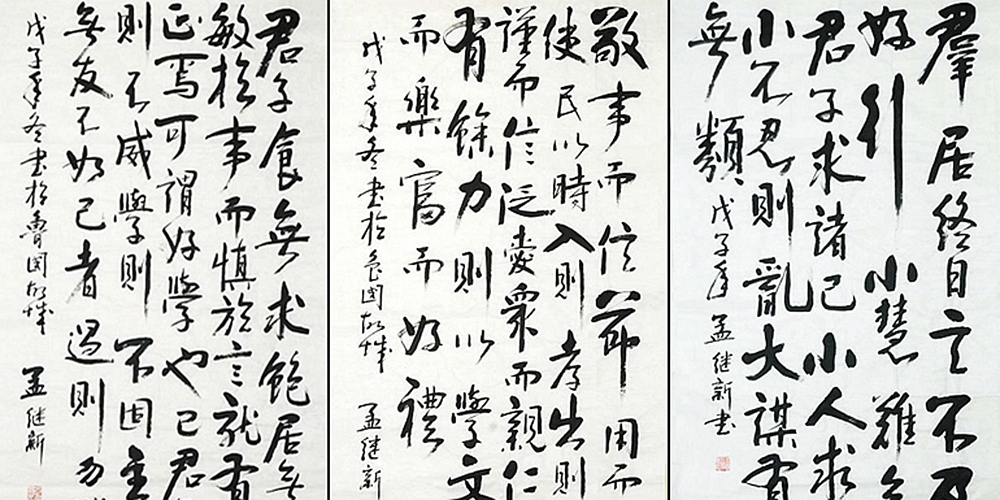 羣居終日言不及
好行小慧難矣
君子求諸己小人求
小不忍則亂大謀有
無類 戊子年 孟继新书
敬事而信節用而
使民以時入則孝出則
謹而信泛愛眾而親仁
有餘力則以學文
而樂富而好禮
戊子年冬書於魯國故城 孟继新
君子食無求飽居無
敏於事而慎於言就有
正焉可謂好學也已君
則不威學則不固主
無友不如己者過則勿
戊子年冬書於魯国故城 孟继新